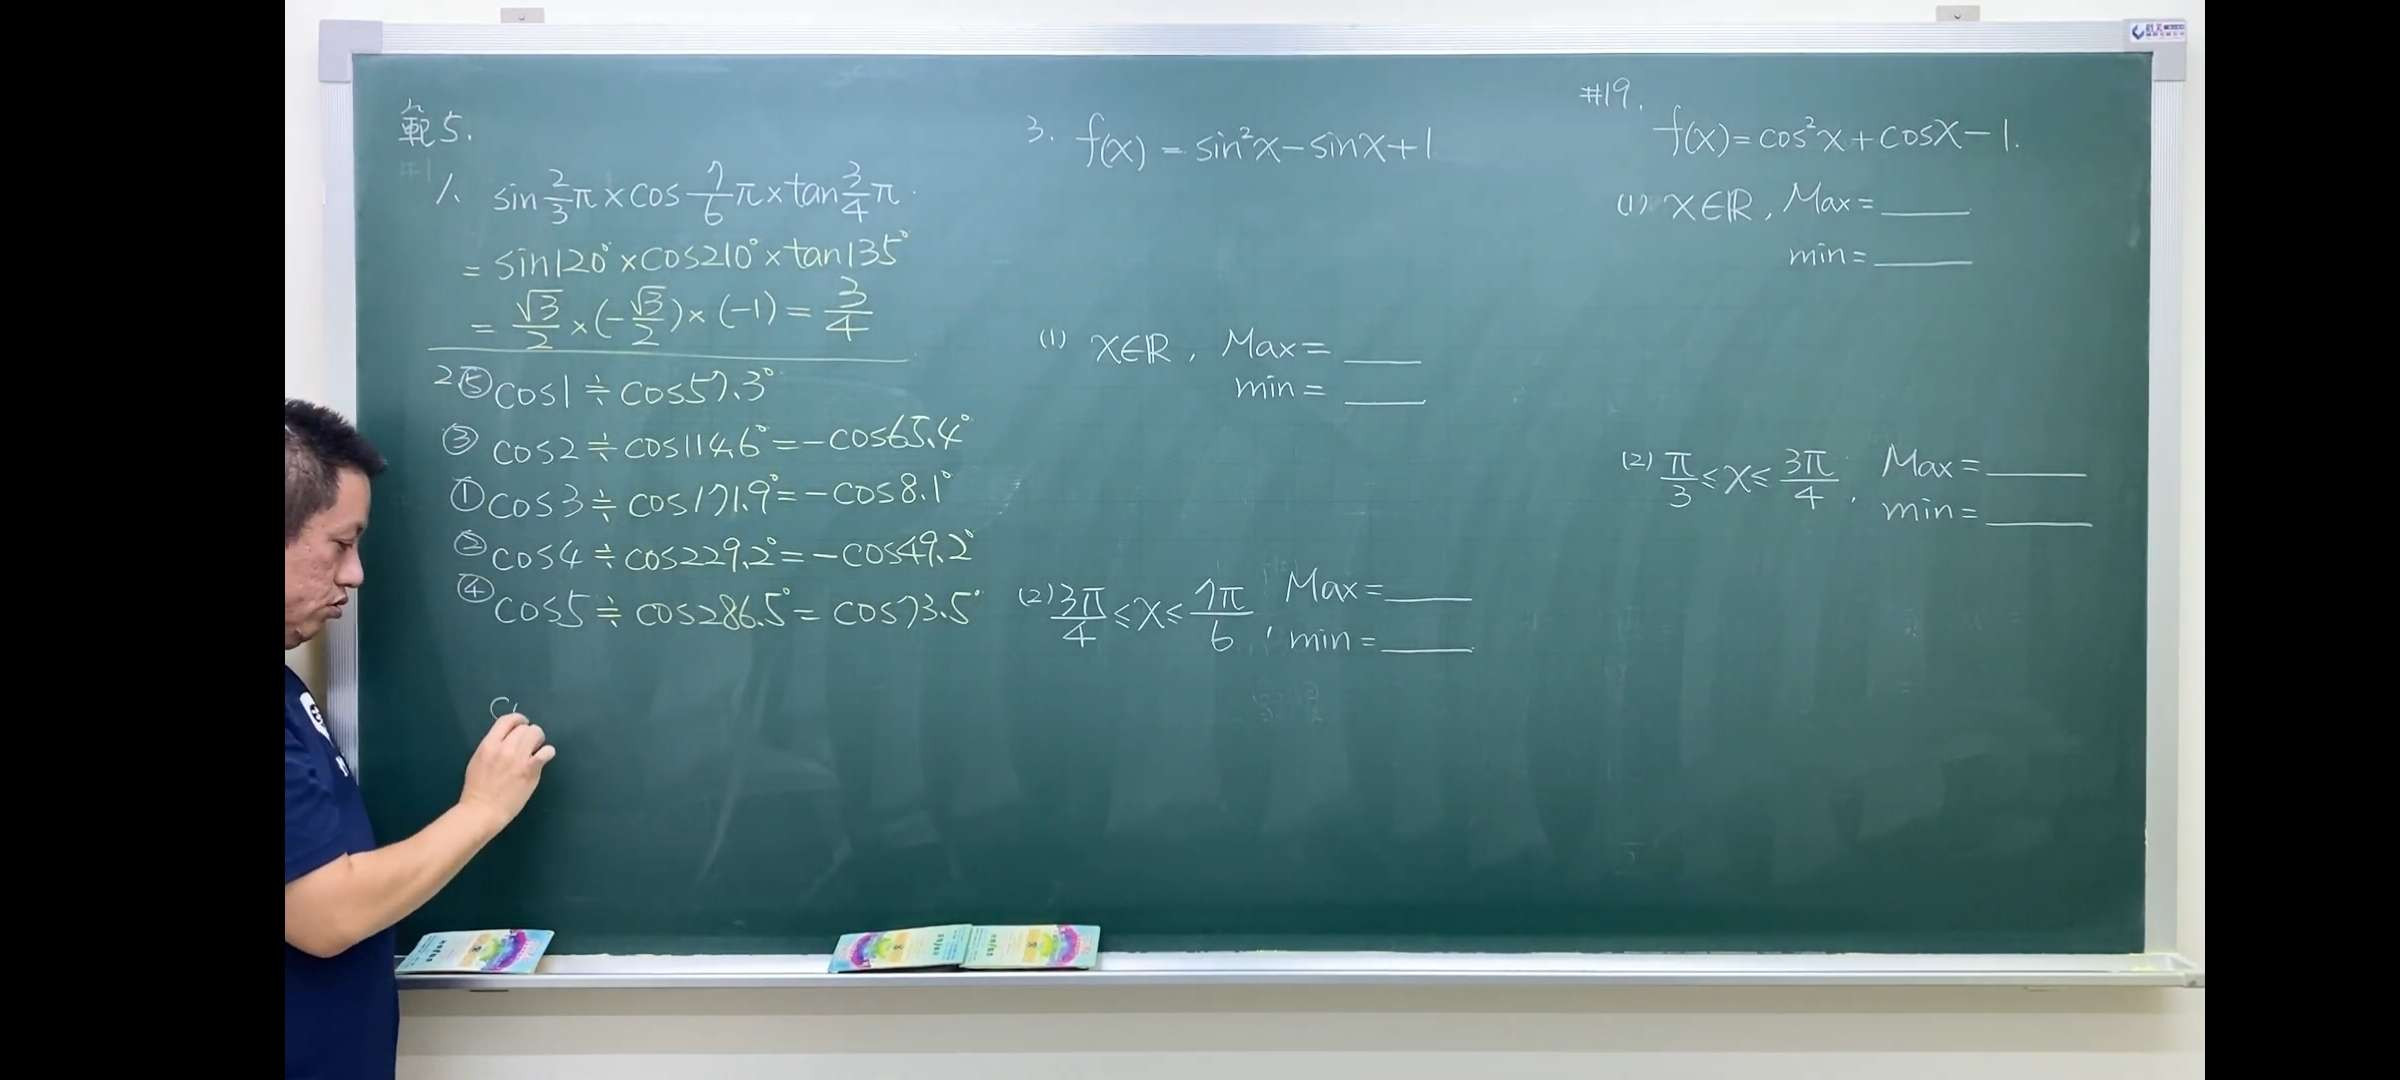 範5.
1. sin 2/3 π × cos 7/6 π × tan 3/4 π.
= sin120° × cos210° × tan135°
= √3/2 × (-√3/2) × (-1) = 3/4
2 ⑤ cos1 ≒ cos57.3°
③ cos2 ≒ cos114.6° = -cos65.4°
① cos3 ≒ cos171.9° = -cos8.1°
② cos4 ≒ cos229.2° = -cos49.2°
④ cos5 ≒ cos286.5° = cos73.5°
3. f(x) = sin²x - sinx + 1
(1) x∈ℝ, Max = ____
min = ____
(2) 3π/4 ≤ x ≤ 7π/6, Max = ____
min = ____
#19.
f(x) = cos²x + cosx - 1.
(1) x∈ℝ, Max = ____
min = ____
(2) π/3 ≤ x ≤ 3π/4, Max = ____
min = ____